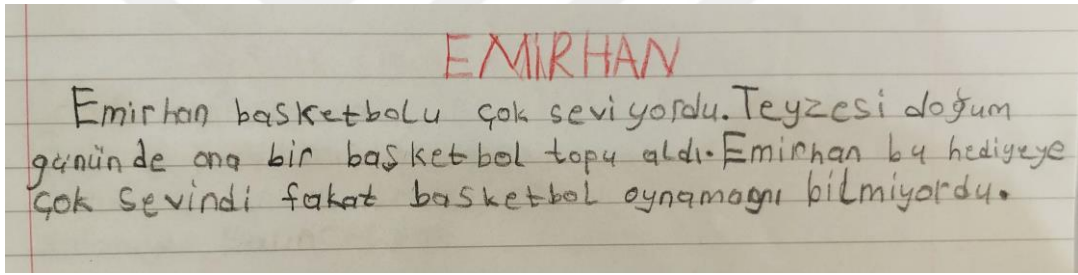 EMİRHAN
Emirhan basketbolu çok seviyordu. Teyzesi doğum
gününde ona bir basketbol topu aldı. Emirhan bu hediyeye
çok sevindi fakat basketbol oynamağnı bilmiyordu.